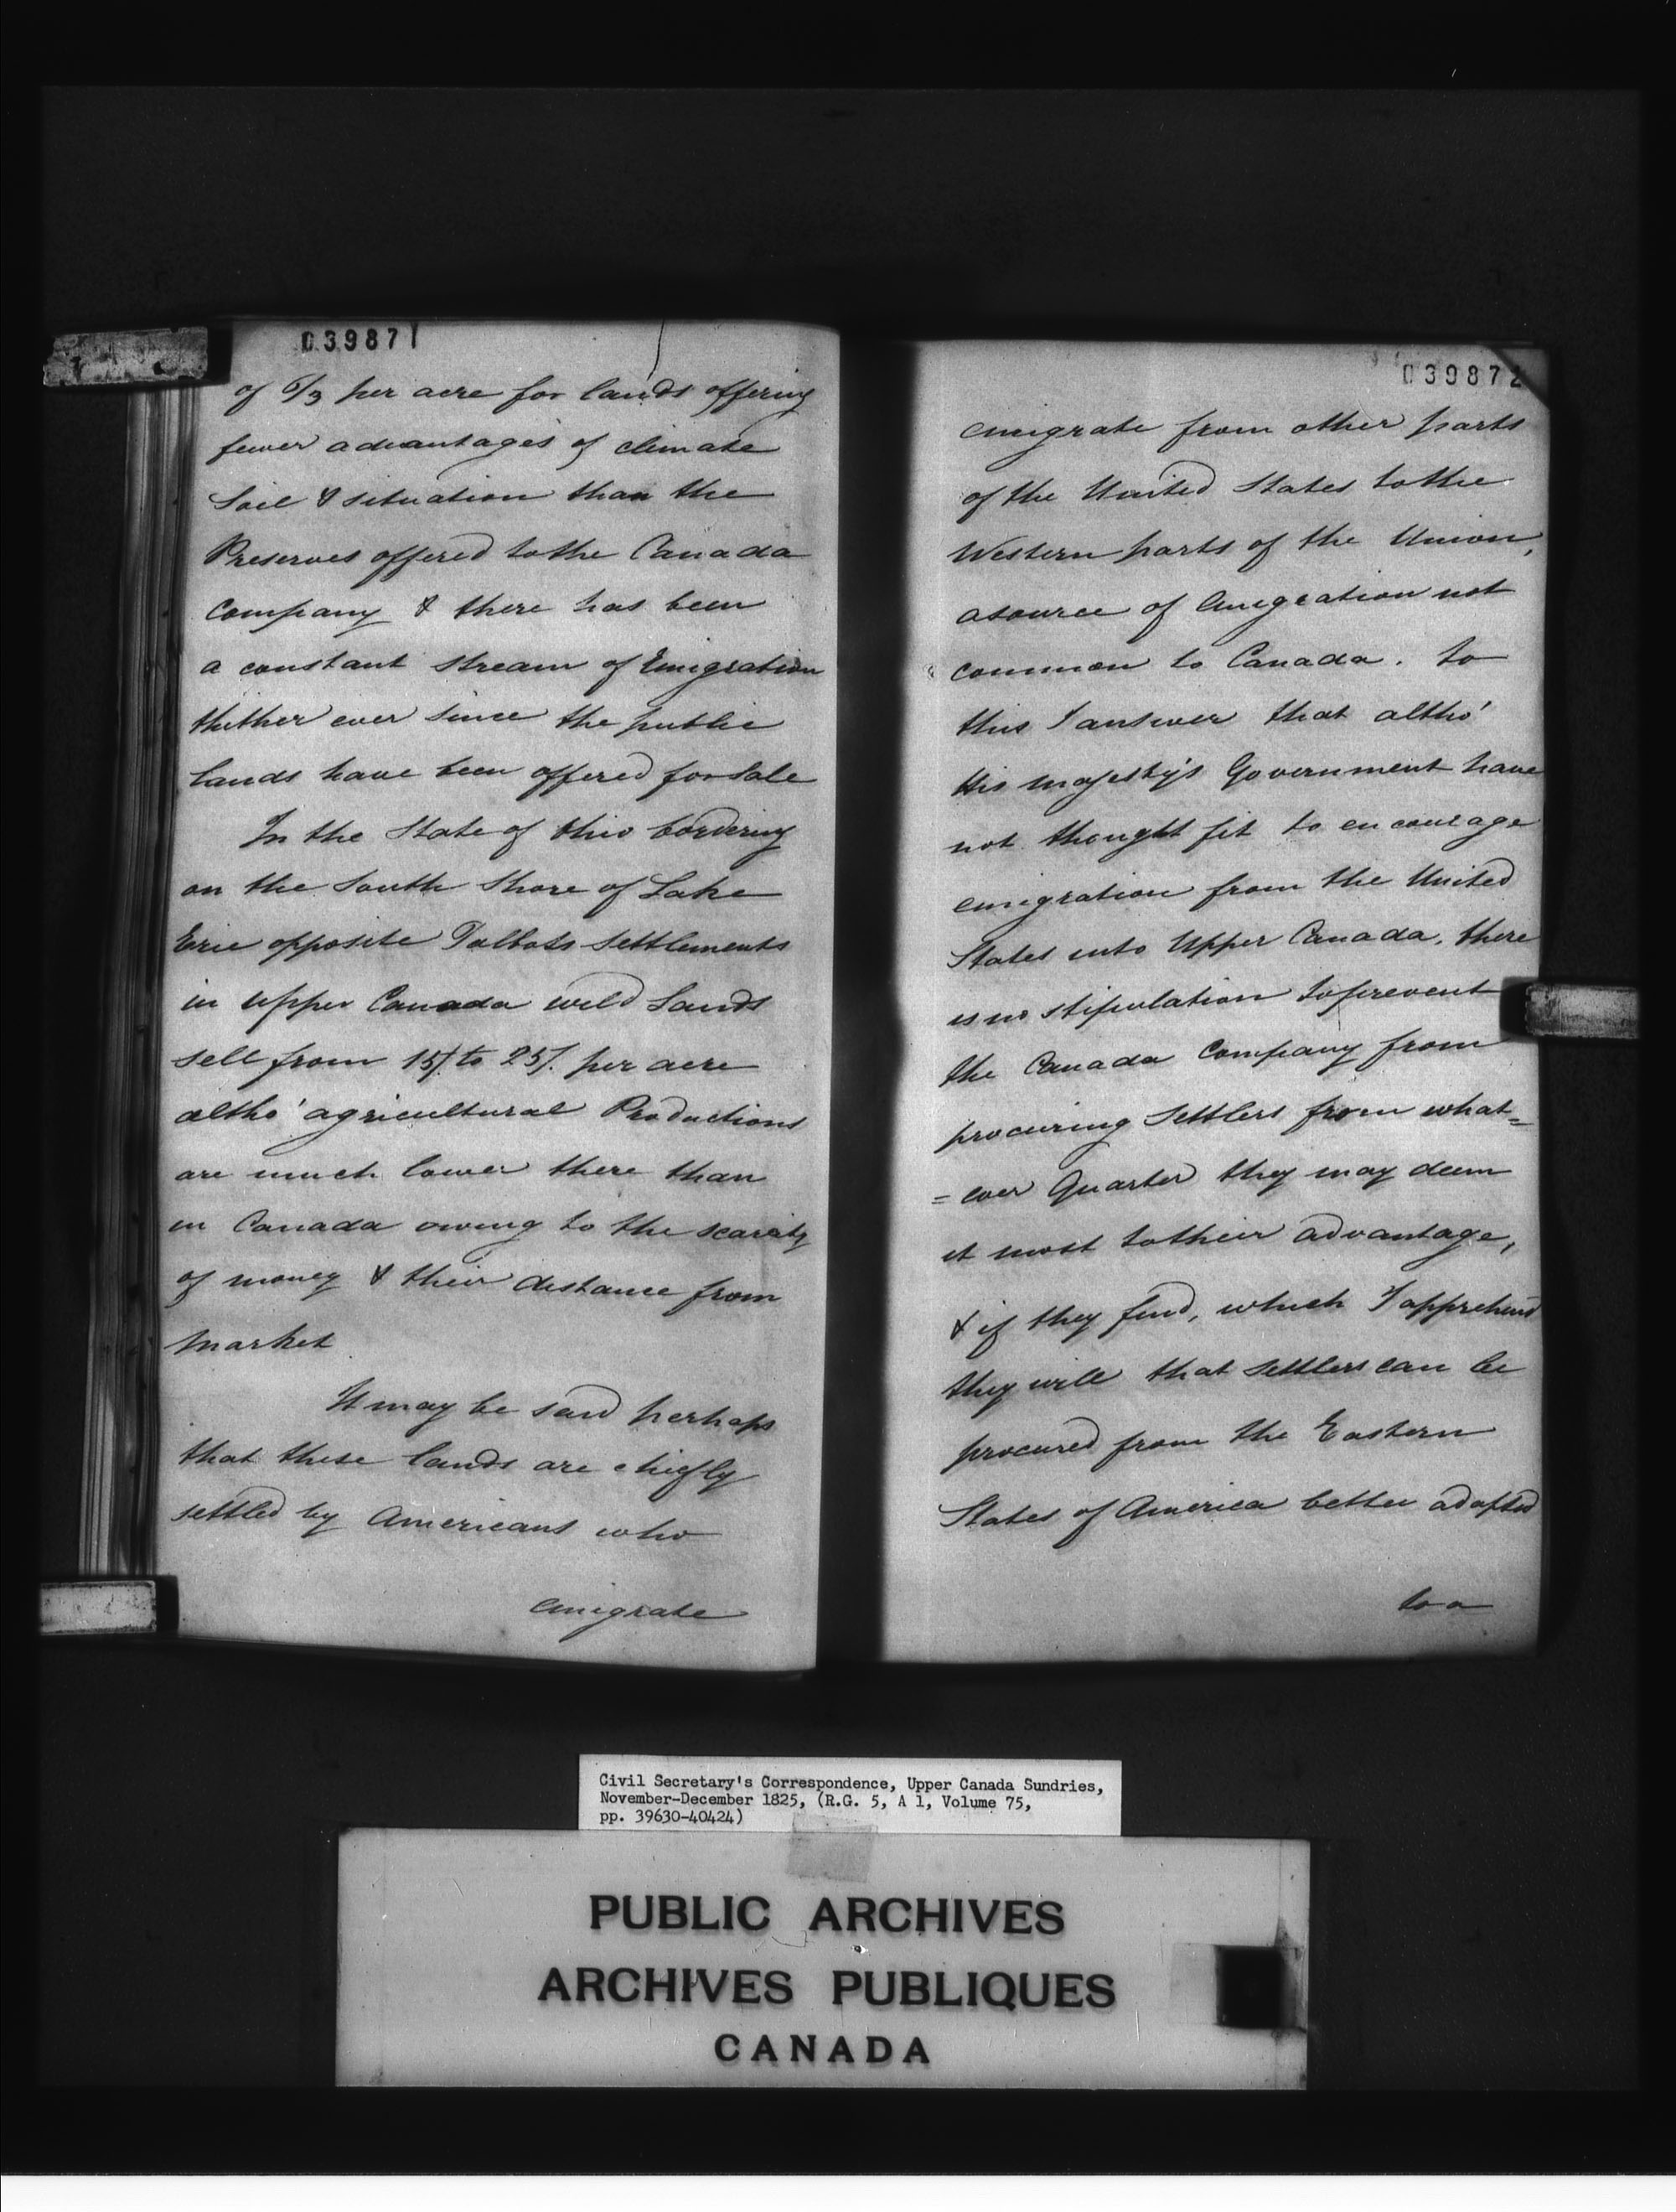 039871
of 6/3 per acre for lands offering
fewer advantages of climate
Soil & situation than the
Preserves offered to the Canada
Company & there has been
a constant stream of Emigration
thither ever since the public
lands have been offered for sale
In the State of Ohio bordering
on the South Shore of Lake
Erie opposite Talbots settlements
in Upper Canada wild Lands
sell from 15/. to 25/. per acre
altho' agricultural Productions
are much lower there than
in Canada owing to the scarcity
of money & their distance from
Market
It may be said perhaps
that these lands are chiefly
settled by Americans who
emigrate
039872
emigrate from other parts
of the United States to the
Western parts of the Union,
a source of Emigration not
common to Canada. To
this I answer that altho'
His Majesty's Government have
not thought fit to encourage
emigration from the United
States into Upper Canada, there
is no stipulation to prevent
the Canada Company from
procuring Settlers from what=
=ever Quarter they may deem
it most to their advantage,
& if they find, which I apprehend
they will that settlers can be
procured from the Eastern
States of America better adapted
to a
Civil Secretary's Correspondence, Upper Canada Sundries,
November-December 1825, (R.G. 5, A 1, Volume 75,
pp. 39630-40424)
PUBLIC ARCHIVES
ARCHIVES PUBLIQUES
CANADA